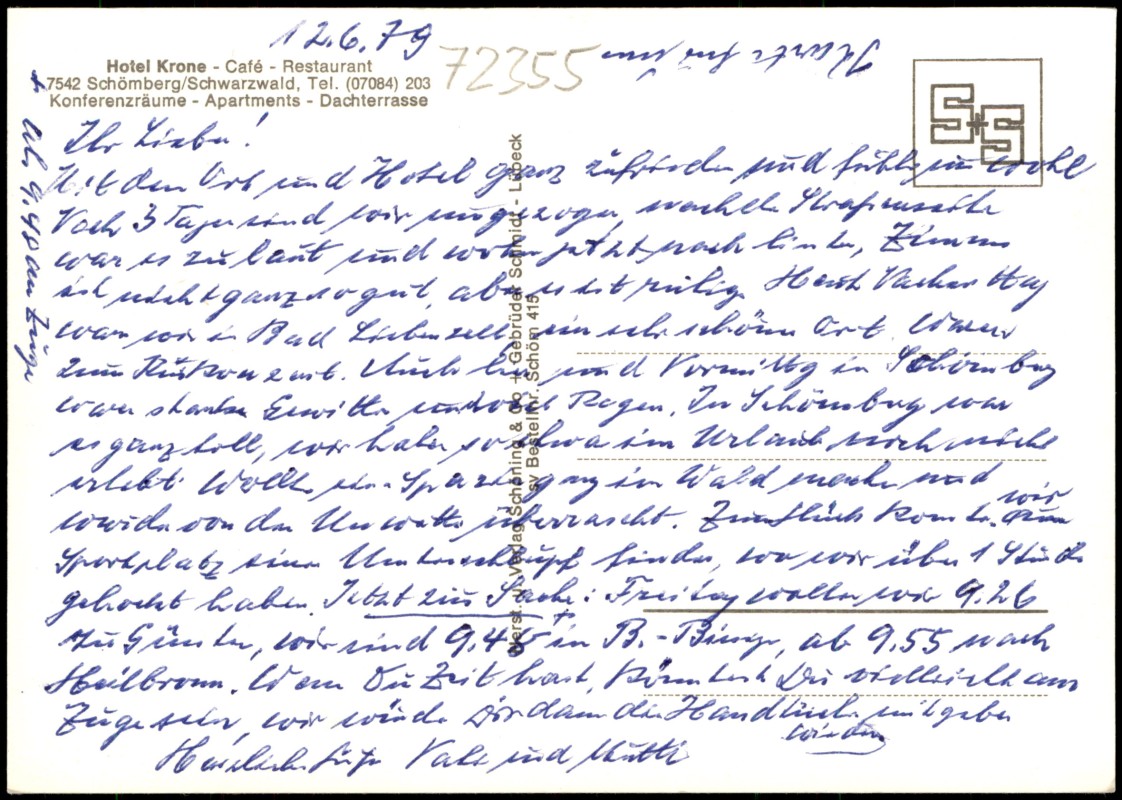 12.6.79
72355
Karte für Euch
Hotel Krone - Café - Restaurant
7542 Schömberg/Schwarzwald, Tel. (07084) 203
Konferenzräume - Apartments - Dachterrasse
S+S
Ihr Lieben!
Mit dem Ort und Hotel ganz zufrieden und fühlen uns wohl
Nach 3 Tagen sind wir umgezogen, nach der Straßenseite
war es zu laut und wohnen jetzt nach hinten, Zimmer
ist nicht ganz so gut, aber es ist ruhiger. Heute Nachmittag
waren wir in Bad Liebenzell, ein sehr schöner Ort. Waren
zum Kurkonzert. Auch hier und Vormittag in Schömberg
war starkes Gewitter und viel Regen. In Schömberg war
es ganz toll, wir haben so etwas im Urlaub noch nicht
erlebt. Wollten einen Spaziergang im Wald machen und
wurden von dem Unwetter überrascht. Zum Glück konnten wir am
Sportplatz einen Unterschlupf finden, wo wir über 1 Stunde
gehockt haben. Jetzt zur Sache: Freitag wollen wir 9.26
zu Günter, wir sind 9.46 + in B.-Binge, ab 9.55 nach
Heilbronn. Wenn Du Zeit hast, könntest Du vielleicht am
Zuge sein, wir würden Dir dann die Handtücher mitgeben
wieder
Herzliche Grüße Vati und Mutti
+ Uhr 9.48 am Zuge
Herst. u. Verlag Schöning & Co + Gebrüder Schmidt - Lübeck
sv Bestellnr. Schöm 415